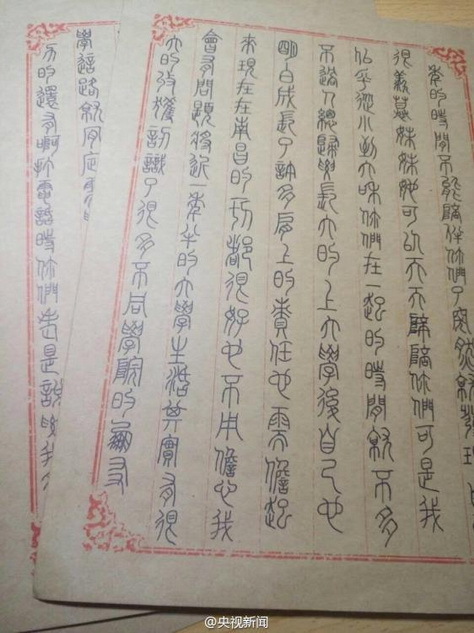 的時間不能陪伴你們了突然就發現
很羨慕妹妹她可以天天陪你們可是我
似乎從小到大和你們在一起的時間就不多
不過人總歸要長大的上大學後自己也
明白成長了許多肩上的責任也需擔起
來現在在南昌的一切都很好也不用擔心我
會有問題將近一年半的大學生活其實有很
大的收穫認識了很多不同學院的朋友
學這路就有
方的還有啊打電話時你們老是說我
@央视新闻